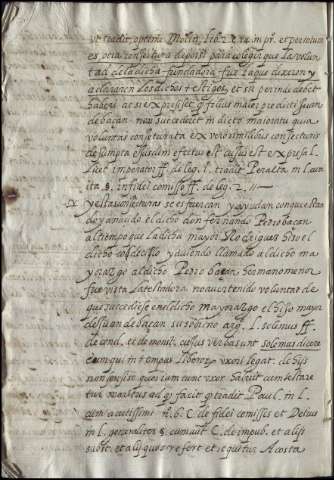 ut tradit optime Molin. lib. 2. c. 4. in pr. et per totum
es otra conjectura para colegir que la volun
tad de la dicha fundadora fue la que dixeron y
declararon los dichos testigos, et sic perinde debet
haberi ac si expresse filius maior praedicti Juan
de baçan non succederet in dicto maioratu quia
voluntas coniecturata ex verosimilibus coniecturis
desumpta eiusdem effectus est cuius est expressa l.
licet imperator ff. de leg. 1. tradit Peralta in l. cum
ita §. in fideicomisso ff. de leg. 2.
y estas conjecturas se esfuerçan y ayudan con que
do y a quando el dicho don fernando Pero baçan
al tiempo que la dicha mayor Rodriguez hizo el
dicho y aviendo llamado al dicho ma
yorazgo al dicho Pero baçan hermano menor
fue vista la testadora no aver tenido voluntad de
que succediese en el dicho mayorazgo el hijo mayor
de Juan de baçan su sobrino arg. l.
de cond. et demonst. cuius verba sunt solemus dicere
cum qui in tempus liberorum uxori legat. de his
non sensisse quos iam tunc uxor habuit cum testare
tur maritus ad quod facit quod tradit Paul. in l.
cum acutissimi n. 6. C. de fidei comissis et Decius
in l. generaliter §. cum autem C. de impub. et alijs
subst. et alij quos refert et sequitur Acosta